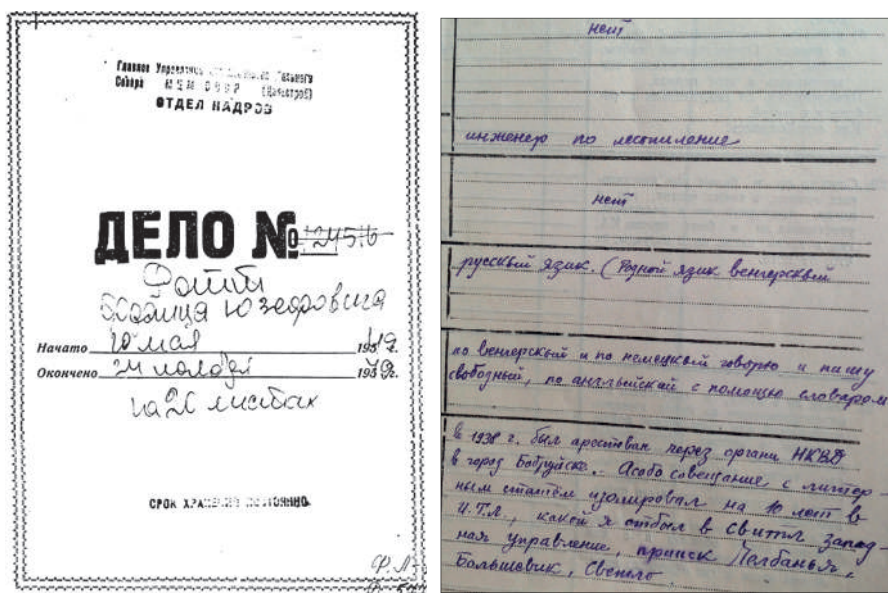 Главное Управление Дальнего
Севера МВМ СССР (Дальстрой)
ОТДЕЛ КАДРОВ
ДЕЛО №
Юзефовича
Начато 10 мая 195
Окончено 195
на 26 листах
СРОК ХРАНЕНИЯ ПОСТОЯННО
нет
инженер по лестпиление
нет
русскый язик. (Родной язик венгерскый
по венгерскый и по немецкый говорю и пишу
свободный, по английский с помощю словаром
в 1938 г. был арестван через органи НКВД
в город Бобруйске. Особо совещание с литер-
ным статём изолировал на 10 лет в
И.Т.Л., какой я отбыл в Свитл Запад-
ная управление, прииск Челбанья,
Большевик, Светло.